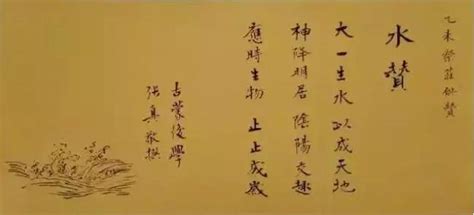 乙未祭莊
水贊
大一生水以成天地
神降明居陰陽交趣
應時生物止止成歲
古蒙後學
張真敬撰